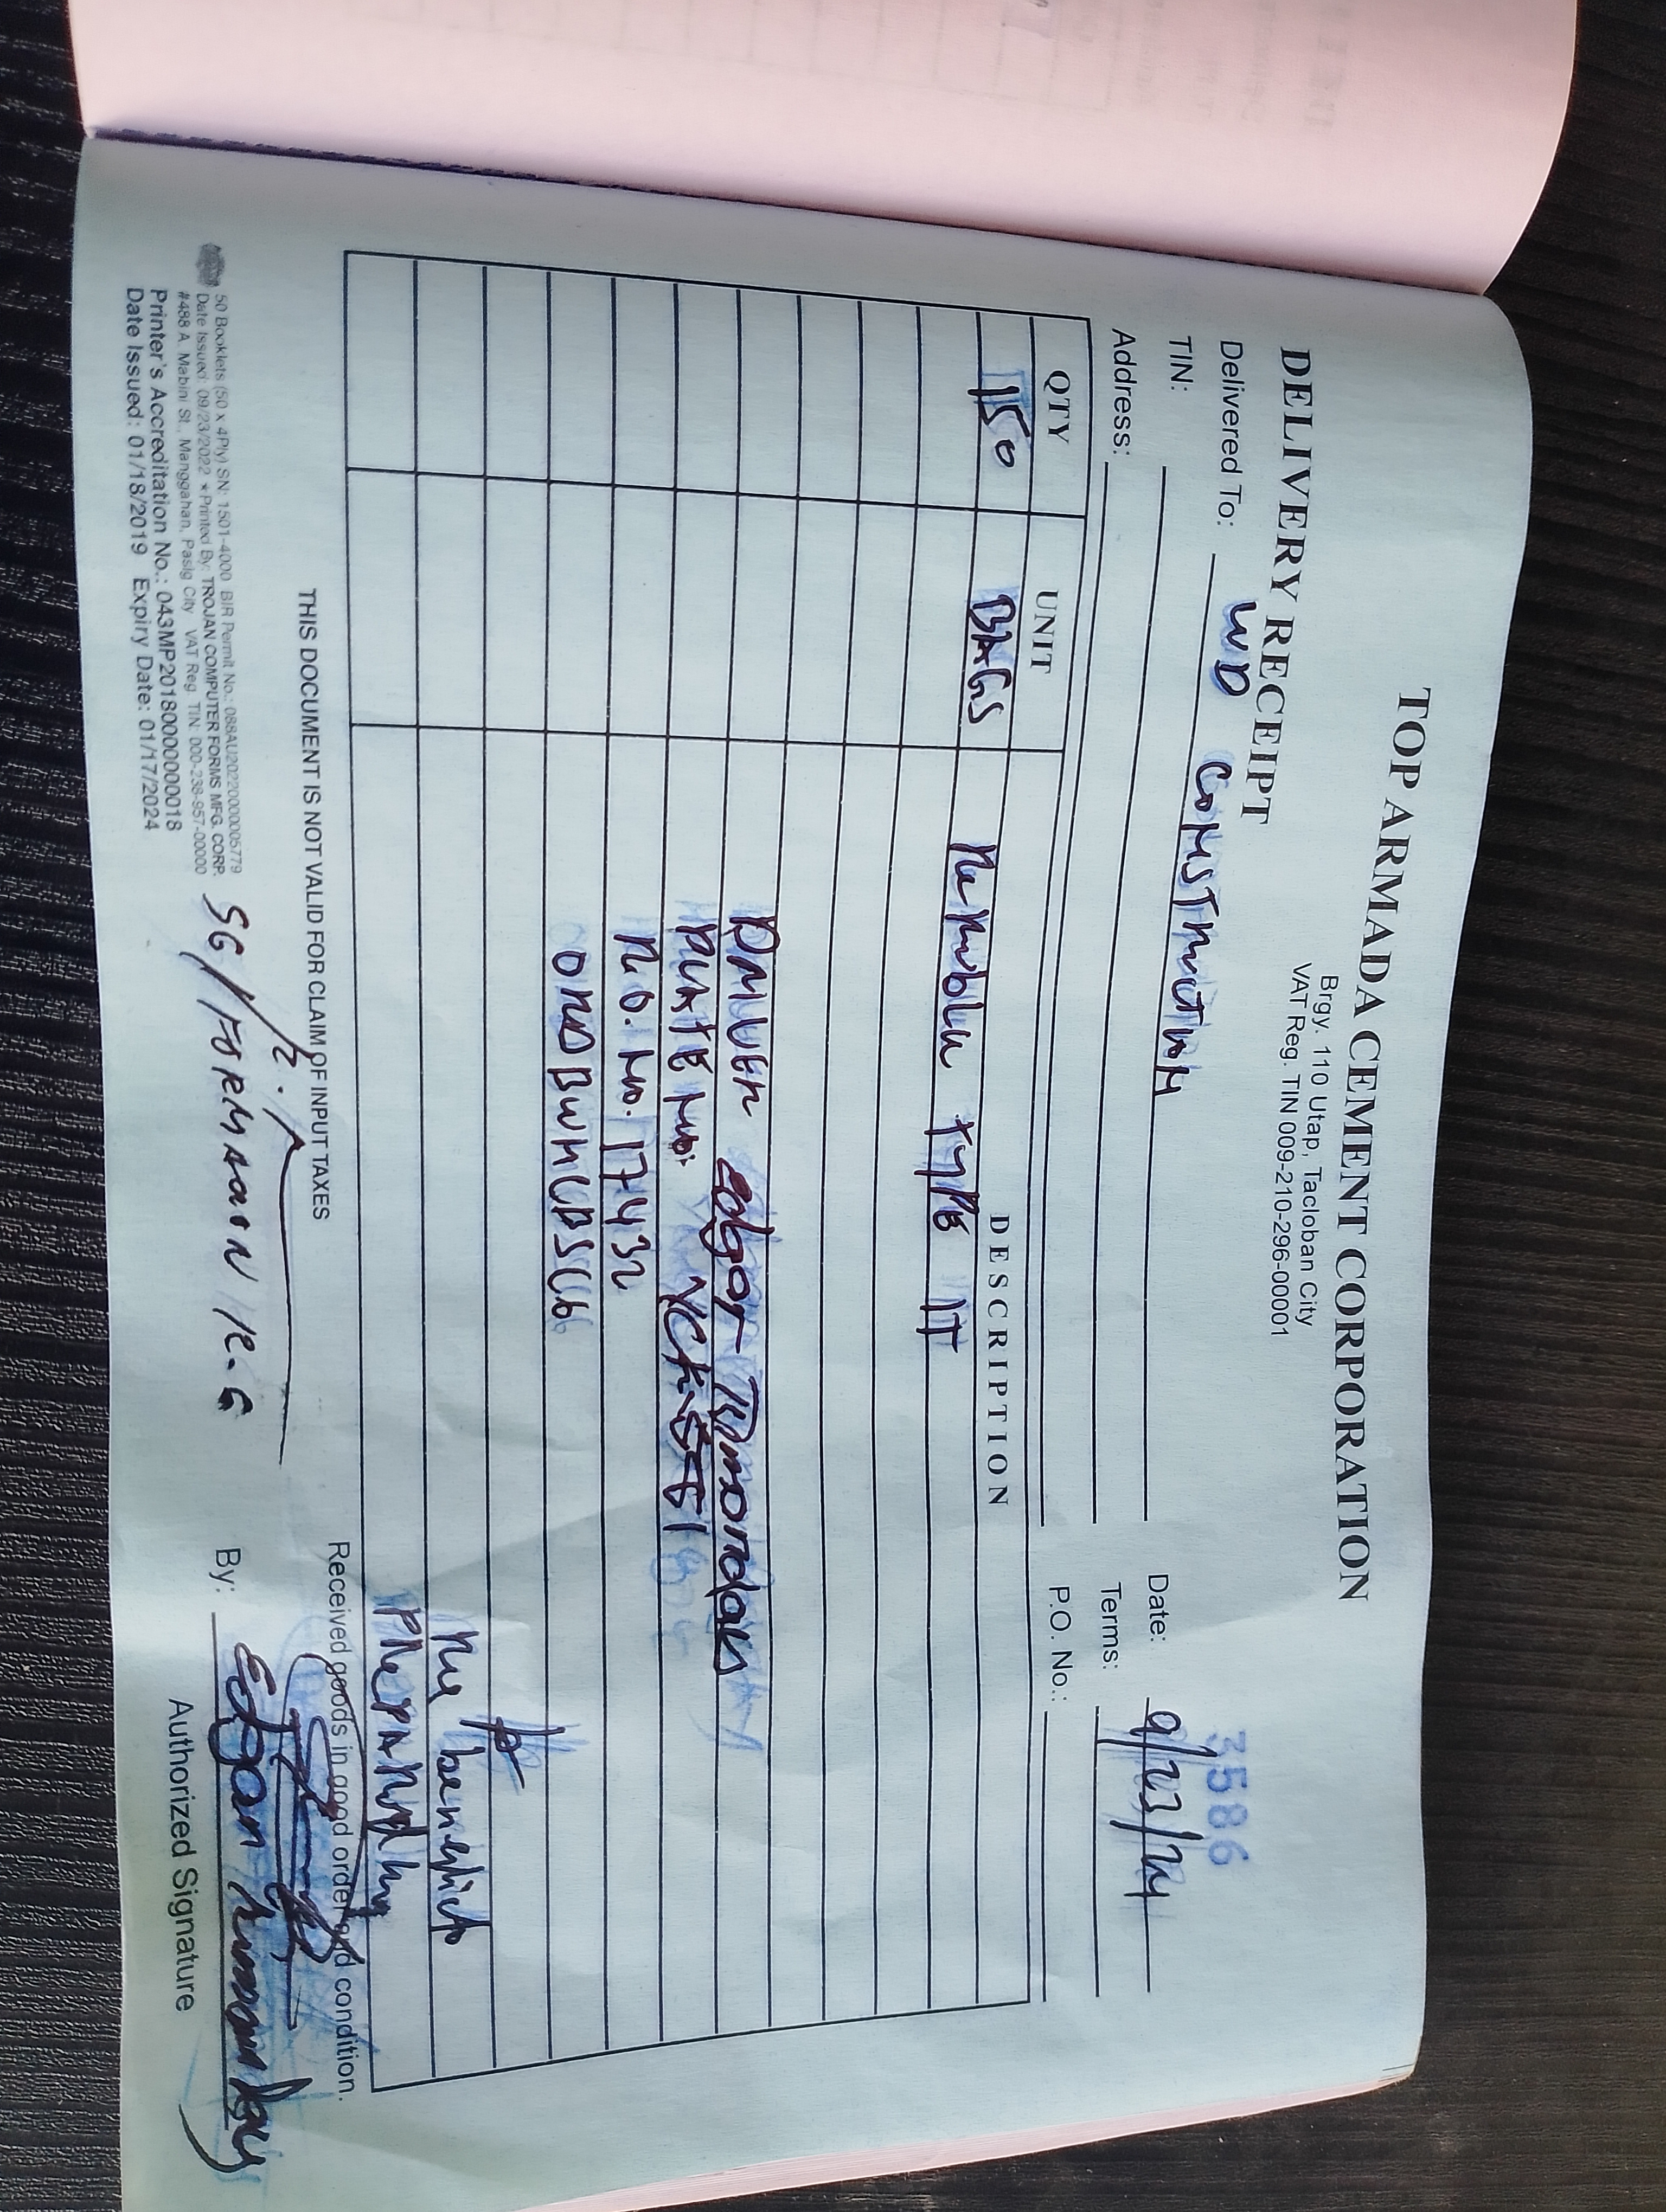 TOP ARMADA CEMENT CORPORATION
Brgy. 110 Utap, Tacloban City
VAT Reg. TIN 009-210-296-00001
DELIVERY RECEIPT
3586
Delivered To: WD CONSTRUCTION
Date: 9/23/24
TIN:
Terms:
Address:
P.O. No.:
QTY UNIT DESCRIPTION
150 BAGS REPUBLIC TYPE 1T
DRIVER edgar
PLATE NO.
P.O. NO. 17432
PREPARED BY
THIS DOCUMENT IS NOT VALID FOR CLAIM OF INPUT TAXES
Received goods in good order and condition.
50 Booklets (50 x 4Ply) SN: 1501-4000 BIR Permit No.: 088AU20220000005779
Date Issued: 09/23/2022 * Printed By: TROJAN COMPUTER FORMS MFG. CORP.
#488 A. Mabini St., Manggahan, Pasig City VAT Reg. TIN: 000-238-957-00000
Printer's Accreditation No.: 043MP20180000000018
Date Issued: 01/18/2019 Expiry Date: 01/17/2024
SG/
By: Edgar
Authorized Signature